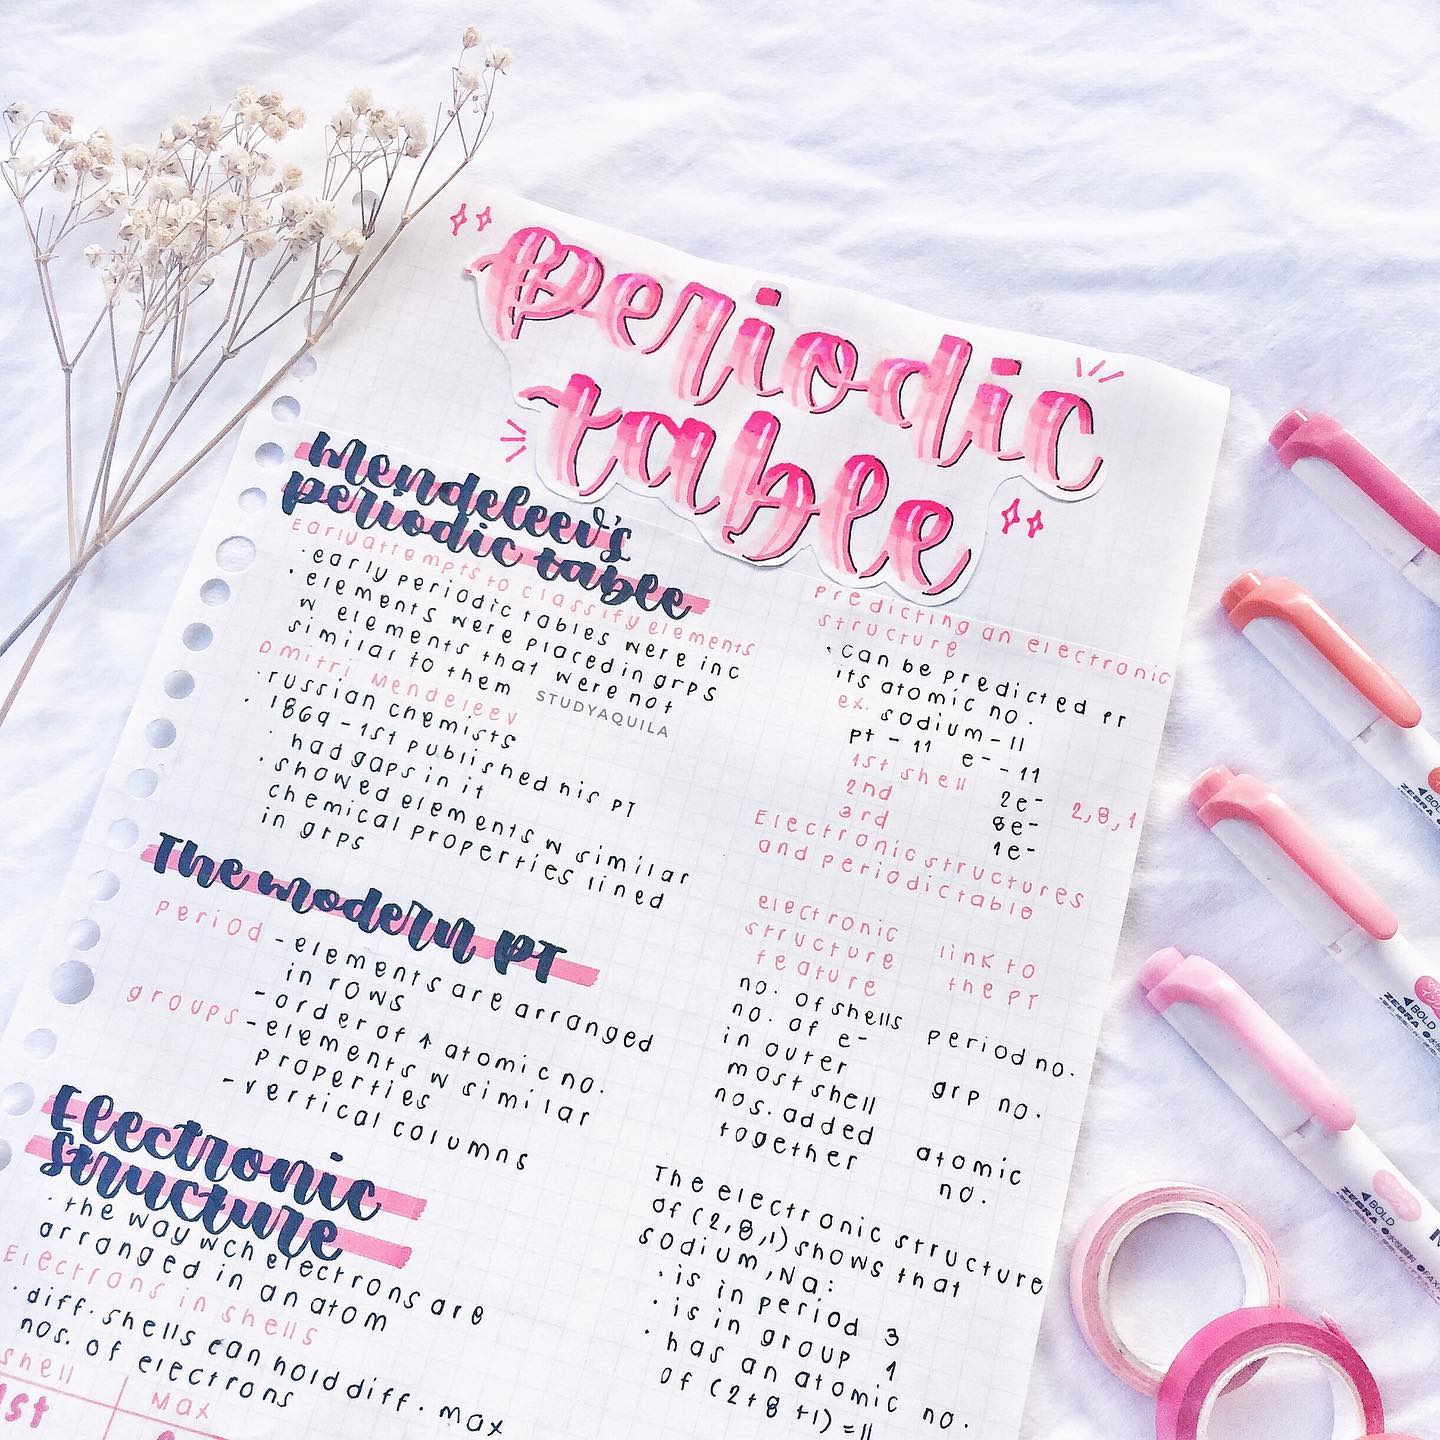 periodic
table
Mendeleev's
periodic table
Early attempts to classify elements
· early periodic tables were inc
· elements were placed in grps
w elements that were not
similar to them
Dmitri Mendeleev
· russian chemists
· 1869 - 1st published his PT
· had gaps in it
· showed elements w similar
chemical properties lined
in grps
STUDYAQUILA
The modern PT
period - elements are arranged
in rows
- order of ↑ atomic no.
groups - elements w similar
properties
- vertical columns
Electronic
structure
· the way wch electrons are
arranged in an atom
Electrons in shells
· diff. shells can hold diff. max
nos. of electrons
shell | Max
1st
Predicting an electronic
structure
· can be predicted fr
its atomic no.
ex. sodium - 11
pt - 11 e- - 11
1st shell 2e-
2nd 8e- 2,8,1
3rd 1e-
Electronic structures
and periodic table
electronic
structure
feature
link to
the PT
no. of shells period no.
no. of e-
in outer
most shell
grp no.
nos. added
together
atomic
no.
The electronic structure
of (2,8,1) shows that
sodium, Na:
· is in period 3
· is in group 1
· has an atomic no.
of (2+8+1)=11
BOLD
ZEBRA
BOLD
ZEBRA
BOLD
ZEBRA